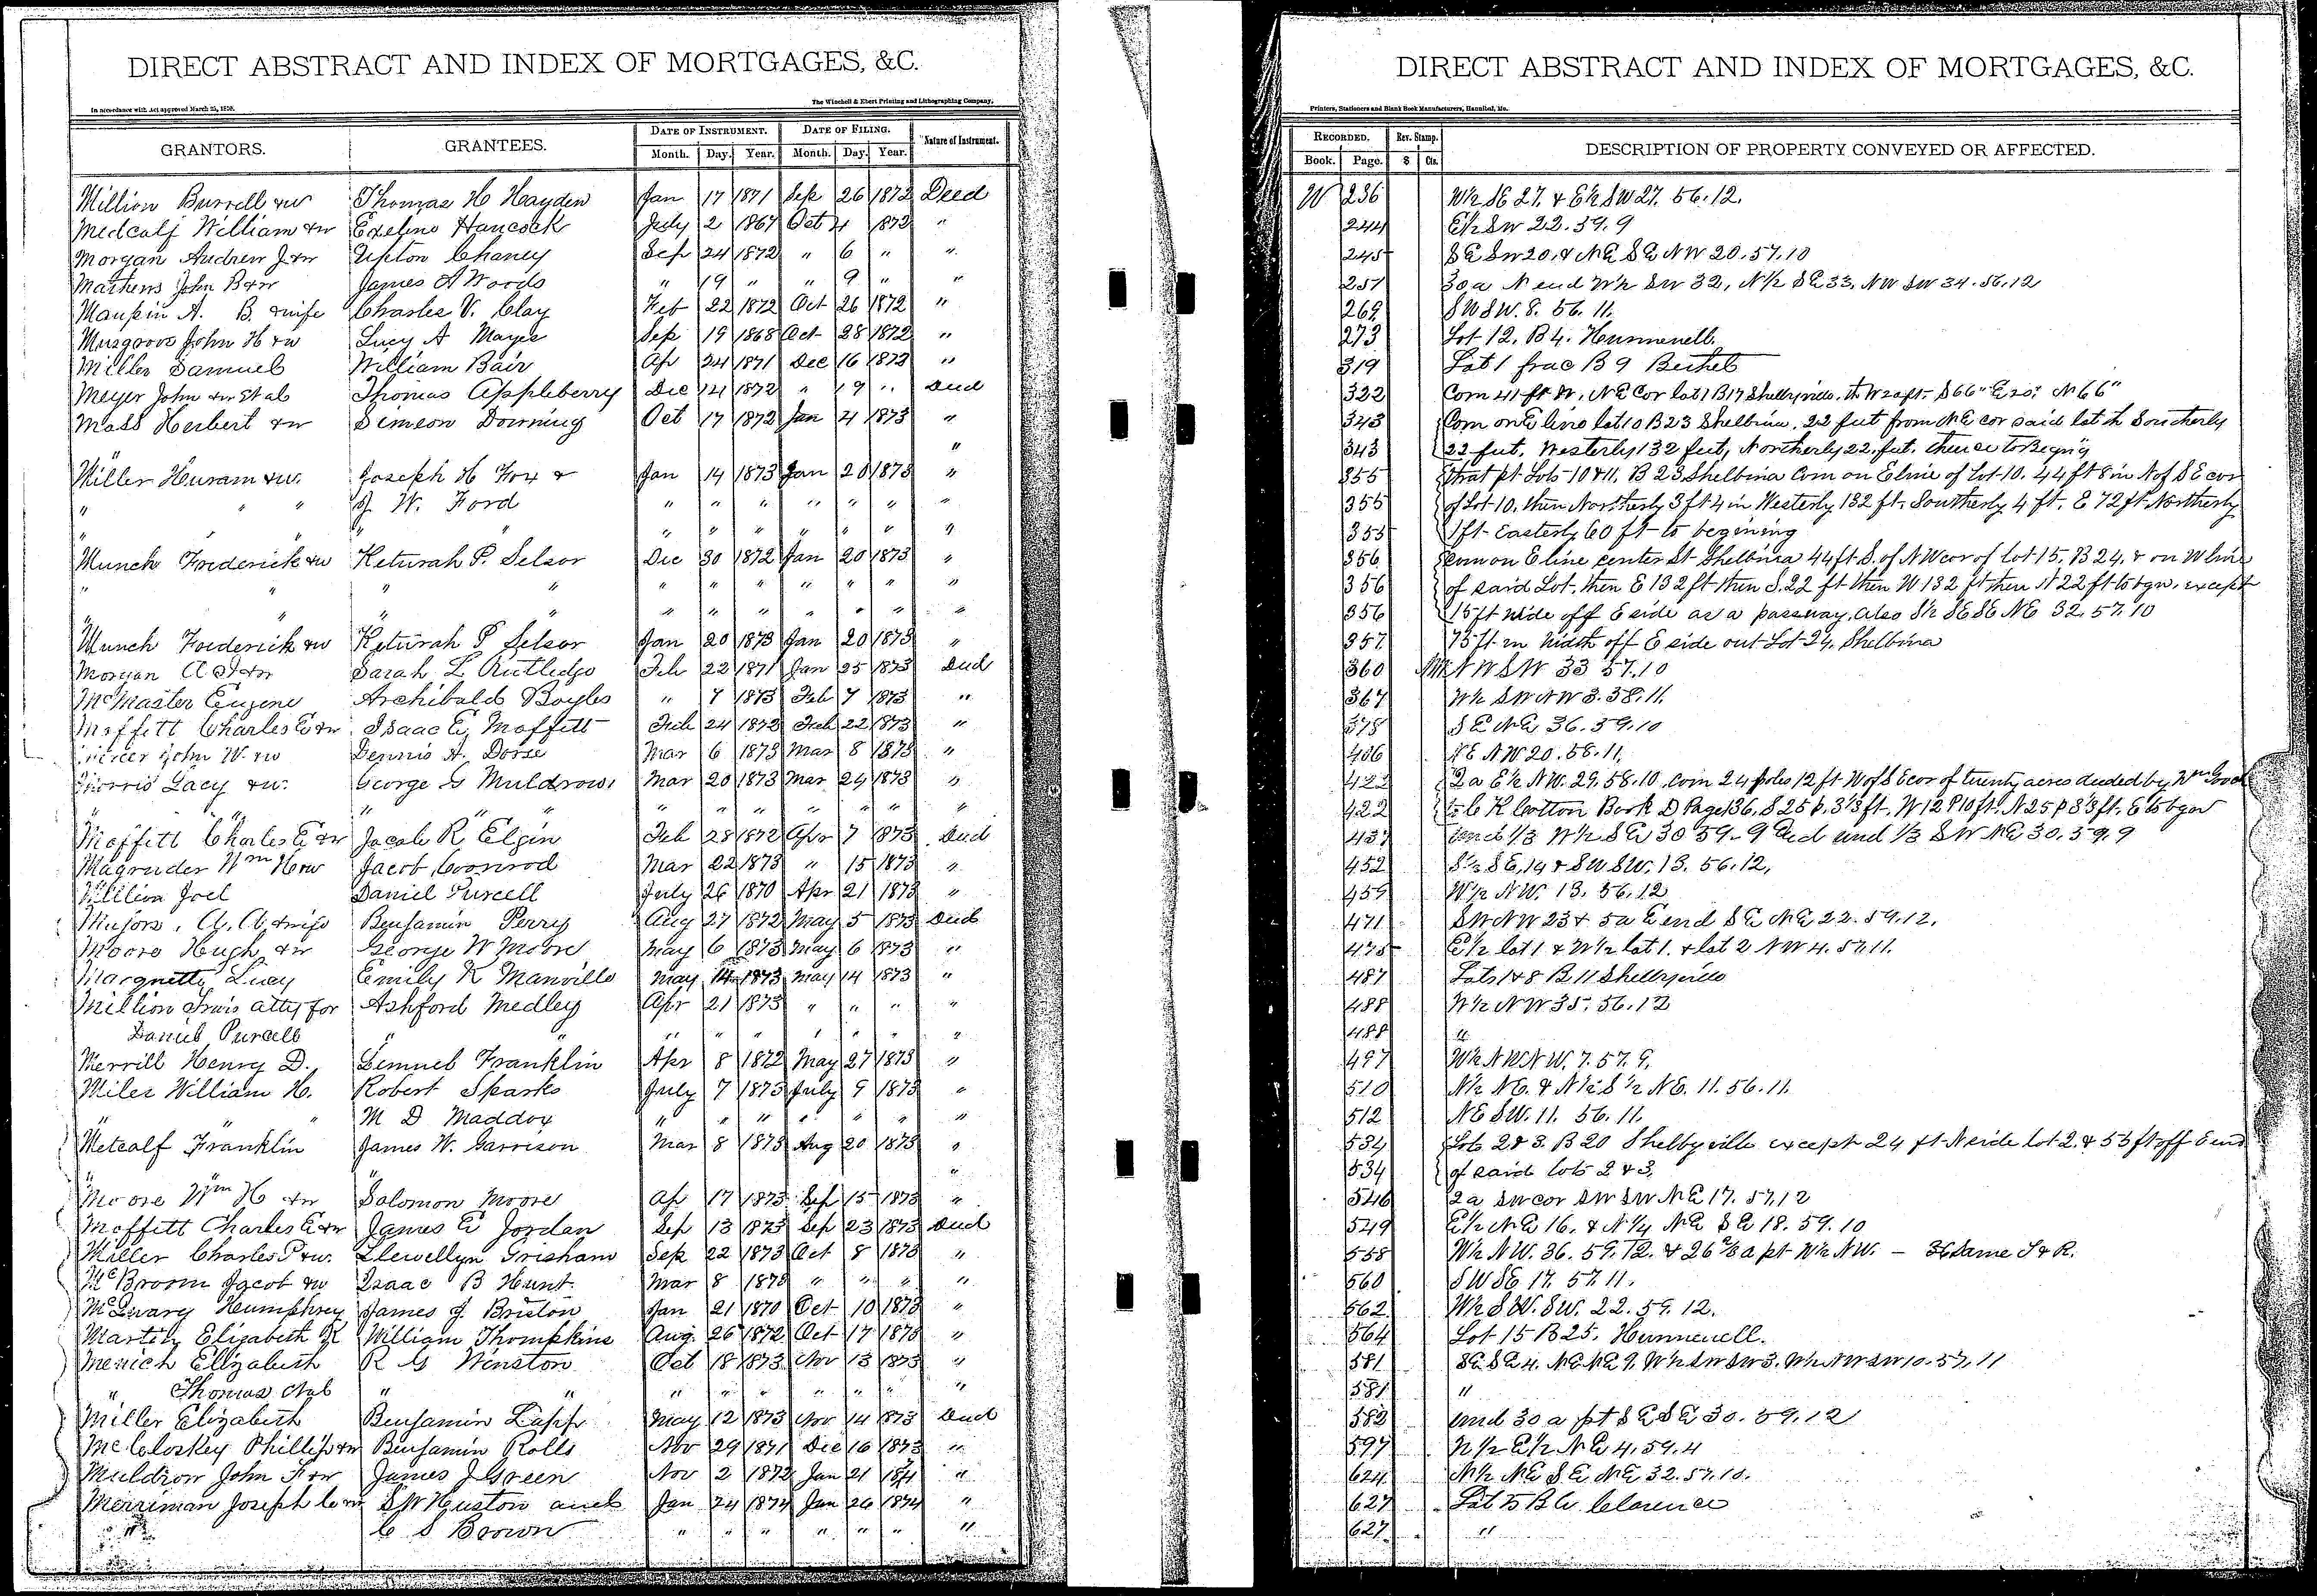 DIRECT ABSTRACT AND INDEX OF MORTGAGES, &C.
In accordance with Act approved March 25, 1859. The Winchell & Ebert Printing and Lithographing Company,
GRANTORS. GRANTEES. DATE OF INSTRUMENT. DATE OF FILING. Nature of Instrument.
Month. Day. Year. Month. Day. Year.
Million Burrell &w Thomas H Hayden Jan 17 1871 Sep 26 1872 Deed
Medcalf William &w Hancock July 2 1867 Oct 4 1872 "
Morgan Andrew J &w Upton Chaney Sep 24 1872 " 6 " "
Mathews John B &w James A Woods " 19 " " 9 " "
Maupin A. B. &wife Charles V. Clay Feb 22 1872 Oct 26 1872 "
Musgrove John H &w Lucy A Mayes Sep 19 1868 Oct 28 1872 "
Miller Samuel William Bair Ap 24 1871 Dec 16 1872 "
Meyer John &w et al Thomas Appleberry Dec 14 1872 " 19 " Deed
Moss Herbert &w Simeon Downing Oct 17 1872 Jan 4 1873 "
"
Miller Huram &w. Joseph H Fox & Jan 14 1873 Jan 20 1873 "
" " " J. W. Ford " " " " " " "
" " " " " " " " " "
Munch Frederick &w Keturah P. Selsor Dec 30 1872 Jan 20 1873 "
" " " " " " " " " " "
" " " " " " " " " " "
Munch Frederick &w Keturah P Selsor Jan 20 1873 Jan 20 1873 "
Morgan A &w Sarah L Rutledge Feb 22 1871 Jan 25 1873 Deed
McMaster Eugene Archibald Bayles " 7 1873 Feb 7 1873 "
Moffett Charles E &w Isaac E. Moffett Feb 24 1872 Feb 22 1873 "
Mercer John W. &w Dennis A. Dorse Mar 6 1873 Mar 8 1873 "
Morris Lacy &w. George G Muldrow Mar 20 1873 Mar 24 1873 "
" " " " " " " " " " "
Moffett Charles E &w Jacob R Elgin Feb 28 1872 Apr 7 1873 Deed
Magruder Wm H &w Jacob Coonrod Mar 22 1873 " 15 1873 "
Million Joel Daniel Purcell July 26 1870 Apr 21 1873 "
Majors. &wife Benjamin Perry Aug 27 1872 May 5 1873 Deed
Moore Hugh &w George W Moore May 6 1873 May 6 1873 "
Marquette Lucy Emily K Manville May 14 1873 May 14 1873 "
Million Travis atty for Ashford Medley Apr 21 1873 " " " "
Daniel Purcell " " " " " " " " "
Merrill Henry D. Lemuel Franklin Apr 8 1872 May 27 1873 "
Miler William H. Robert Sparks July 7 1873 July 9 1873 "
" " M D Maddox " " " " " " "
Metcalf Franklin James W. Garrison Mar 8 1873 Aug 20 1873 "
" " "
Moore Wm H &w Solomon Moore Ap 17 1873 Sep 15 1873 "
Moffett Charles E &w James E Jordan Sep 13 1873 Sep 23 1873 Deed
Miller Charles P &w. Llewellyn Grisham Sep 22 1873 Oct 8 1873 "
McBroom Jacob &w Isaac B Hunt Mar 8 1873 " " " "
McQuary Humphrey James J. Briston Jan 21 1870 Oct 10 1873 "
Martin Elizabeth William Thompkins Aug. 26 1872 Oct 17 1873 "
Menich Elizabeth R G Winston Oct 18 1873 Nov 13 1873 "
" Thomas et al " " " " " " " " "
Miller Elizabeth Benjamin Lapp May 12 1873 Nov 14 1873 Deed
McCloskey Phillip &w Benjamin Rolls Nov 29 1871 Dec 16 1873 "
Muldrow John F &w James J Green Nov 2 1872 Jan 21 1874 "
Merriman Joseph C &w S W Huston and Jan 24 1874 Jan 26 1874 "
" C S Brown " " " " " " "
DIRECT ABSTRACT AND INDEX OF MORTGAGES, &C.
Printers, Stationers and Blank Book Manufacturers, Hannibal, Mo.
RECORDED. Rev. Stamp. DESCRIPTION OF PROPERTY CONVEYED OR AFFECTED.
Book. Page. $ Cts.
W 236 W½ SE 27. & E½ SW 27. 56.12.
244 E½ SW 22.59.9
245 SE SW 20, & NE SE NW 20.57.10
257 30 a N end W½ SW 32, N½ SE 33, NW SW 34.56.12
269 SW SW. 8. 56. 11.
273 Lot 12, B 4. Hunnewell.
319 Lot 1 frac B 9 Bethel
322 Com 41 ft W. NE Cor lot 1 B 17 Shelbyville, th W 20 ft- S 66" E 20" N 66"
343 Com on E line lot 10 B 23 Shelbina, 22 feet from NE cor said lot th Southerly
343 22 feet, Westerly 132 feet, Northerly 22 feet, thence to Begin'g
355 that pt Lots 10 & 11, B 23 Shelbina Com on E line of Lot 10. 44 ft 8 in N of SE cor
355 of Lot 10, then Northerly 3 ft 4 in Westerly 132 ft. Southerly 4 ft, E 72 ft Northerly
355 1 ft Easterly 60 ft to begining
356 Com on E line center St Shelbina 44 ft S. of NW cor of lot 15, B 24, & on W line
356 of said Lot, then E 132 ft then S. 22 ft then W 132 ft then N 22 ft to bgn, except
356 15 ft wide off E side as a passway, also S½ SE SE NE 32.57.10
357 75 ft in width off E side out Lot 24, Shelbina
360 NW SW 33 57.10
367 W½ SW NW 3.58.11.
378 SE NE 36.59.10
406 NE NW 20.58.11,
422 2 a E½ NW. 29.58.10, Com 24 poles 12 ft W of SE cor of twenty acres deeded by Wm Gooch
422 to C K Cotton Book D Page 136, S 25 p. 3⅓ ft, W 12 P 10 ft. N 25 p 3⅓ ft. E to bgn
437 und ⅓ W½ SE 30 59-9 and und ⅓ SW NE 30.59.9
452 S½ SE, 14 & SW SW, 13. 56.12,
459 W½ NW. 13. 56.12
471 SW NW 23 & 5 a E end SE NE 22.59.12.
475 E½ lot 1 & W½ lot 1. & lot 2 NW 4.57.11.
487 Lots 1 & 8 B 11 Shelbyville
488 W½ NW 35.56.12
488 "
497 W½ NW NW, 7.57.9,
510 N½ NE. & N½ S½ NE. 11.56.11.
512 NE SW. 11. 56.11.
534 Lots 2 & 3. B 20 Shelbyville except 24 ft N side lot 2, & 55 ft off E end
534 of said lots 2 & 3.
546 2 a SW cor SW SW NE 17.57.12
549 E½ NE 16. & N¼ NE SE 18.59.10
558 W½ NW. 36.59.12. & 26 a pt W½ NW. - 36 same T & R.
560 SW SE 17.57.11.
562 W½ SW. SW. 22.59.12.
564 Lot 15 B 25. Hunnewell.
581 SE SE 4. NE NE 9. W½ SW SW 3. W½ NW SW 10.57.11
581 "
582 und 30 a pt SE SE 30.59.12
597 N½ E½ NE 4.59.4
624 N½ NE SE NE 32.57.10.
627 Lot 5 B Clarence
627 "